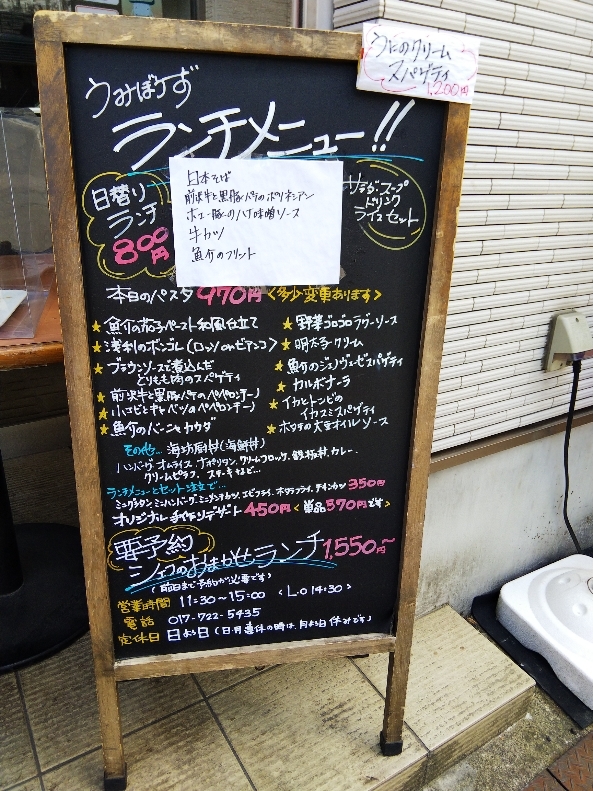 うにのクリーム
スパゲティ
1,200円
うみぼうず
ランチメニュー!!
日替り
ランチ
800円
日本そば
前沢牛と黒豚パテのポリネシアン
牛カツ
魚介のフリット
サラダ・スープ
ドリンク
ライスセット
本日のパスタ 970円 <多少変更あります>
★魚介の茄子ペースト和風仕立て
★浅利のボンゴレ(ロッソorビアンコ)
★ブラウンソースで煮込んだ
とりもも肉のスパゲティ
★前沢牛と黒豚パテのペペロンチーノ
★小エビとキャベツのペペロンチーノ
★魚介のバーニャカウダ
★野菜ゴロゴロラグーソース
★明太子クリーム
★魚介のジェノヴェーゼスパゲティ
★カルボナーラ
★イカとトンビの
イカスミスパゲティ
★ホタテの大豆オイルソース
その他… 海坊厨丼(海鮮丼)
ハンバーグ、オムライス、ナポリタン、クリームコロッケ、鉄板丼、カレー、
クリームピラフ、ステーキなど…
ランチメニューとセット注文で…
ミックラタン、ミニハンバーグ、ミニメンチカツ、エビフライ、ホタテフライ、チキンカツ 350円
オリジナル手作りデザート 450円 <単品570円です>
要予約
シェフのおまかせランチ 1,550円~
(前日まで予約が必要です)
営業時間 11:30~15:00 <L.O 14:30>
電話 017-722-5435
定休日 日よう日(日・月連休の時は、月よう日休みです)